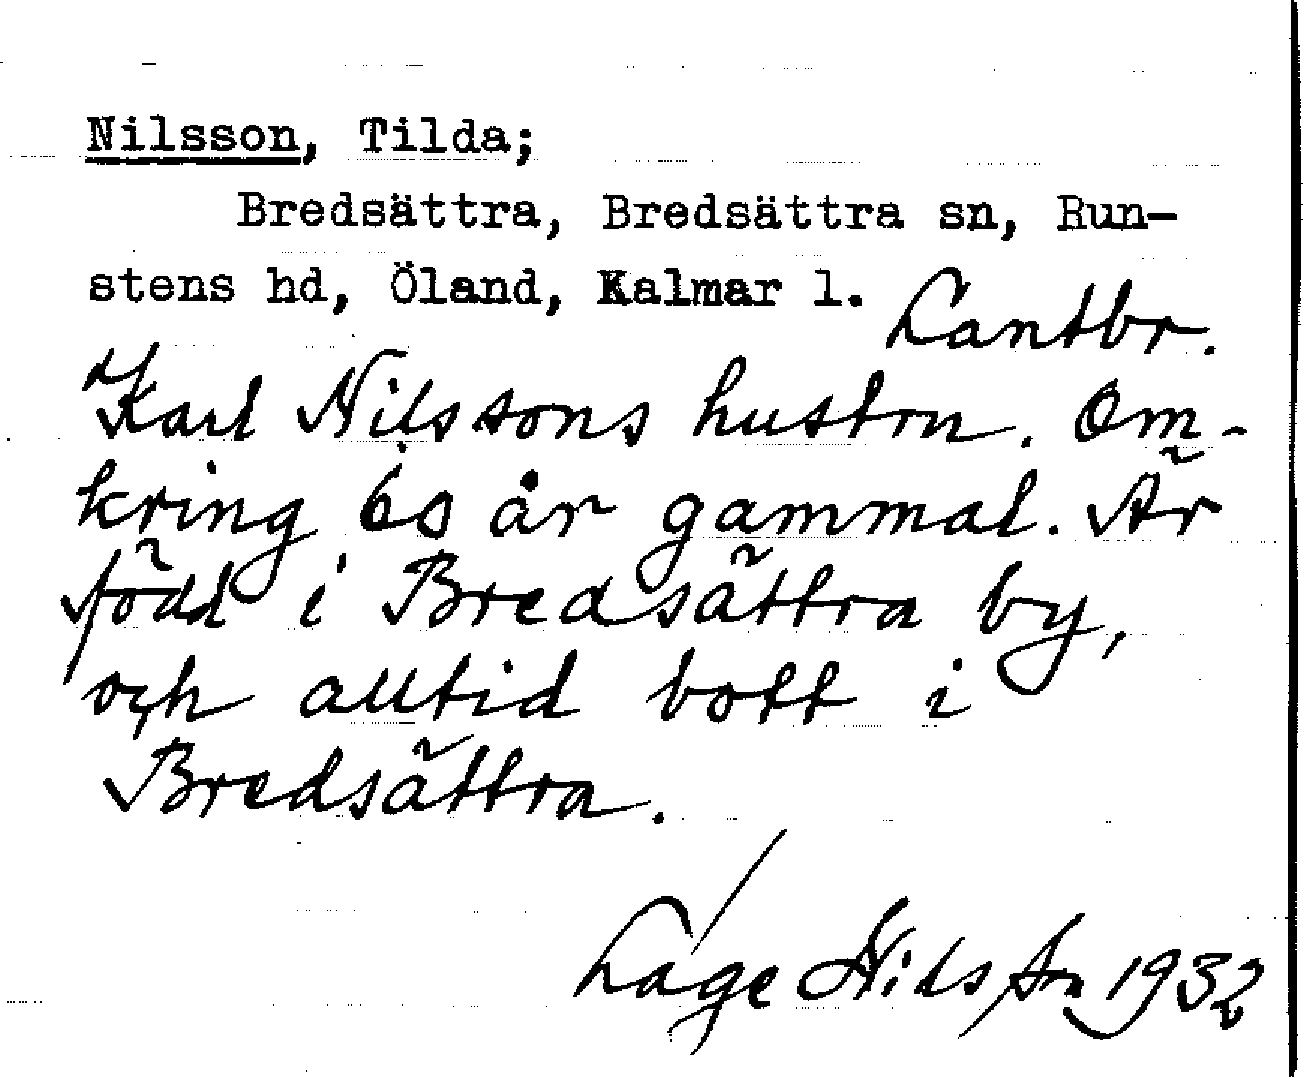 Nilsson, Tilda;
Bredsättra, Bredsättra sn, Run-
stens hd, Öland, Kalmar l. Lantbr.
Karl Nilssons hustru. Om-
kring 60 år gammal. Är
född i Bredsättra by,
och alltid bott i
Bredsättra.
Lage Nilsson 1932